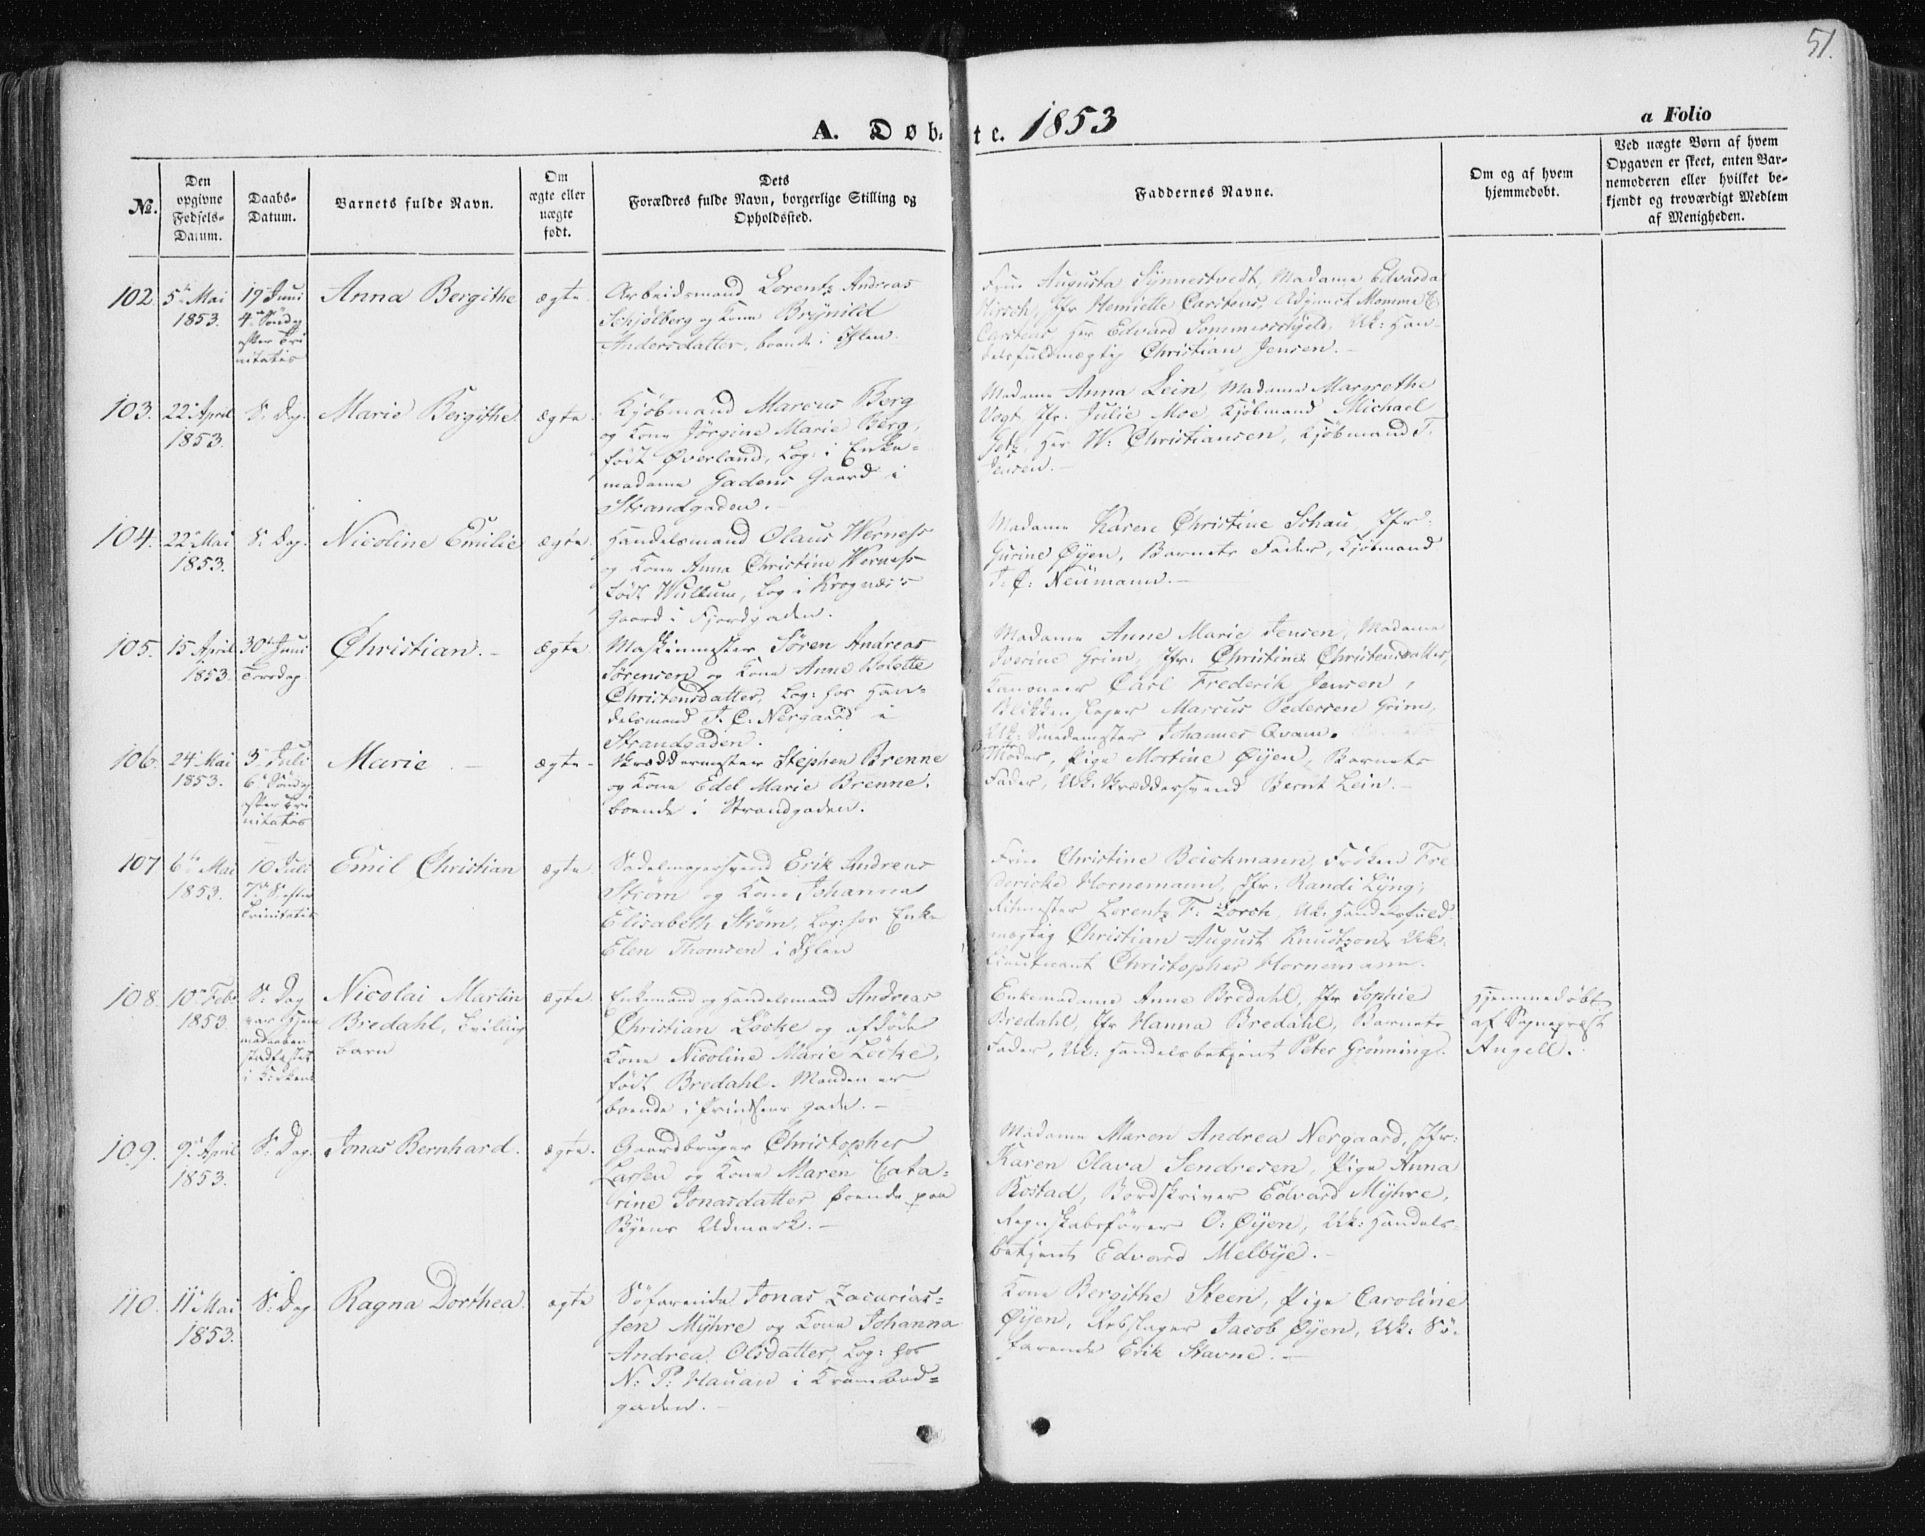 51.
A. Døbte. 1853
a Folio
No.
Den opgivne Fødsels-Datum.
Daabs-Datum.
Barnets fulde Navn.
Om ægte eller uægte født.
Dets Forældres fulde Navn, borgerlige Stilling og Opholdssted.
Faddernes Navne.
Om og af hvem hjemmedøbt.
Ved uægte Børn af hvem Opgaven er skeet, enten Barnemoderen eller hvilket bekjendt og troværdigt Medlem af Menigheden.
102
5te Mai
1853.
19 Juni
4 Søndag
efter Tri
nitatis
Anna Bergithe
ægte
Arbeidsmand Lorentz Andreas
Schjølberg og Kone Brynild
Andersdatter, boende i Ihlen.
Frue Augusta Synnestvedt, Madame Edvarda
Hirsch, Jfr Henriette Carstens, Adjunct Momme C
Carstens, Her Edvard Sommerschjeld, Uk: Han-
delsfuldmægtig Christian Jensen.
103.
22 April
1853.
S: Dag.
Marie Bergithe
ægte
Kjøbmand Marcus Berg
og Kone Jörgine Marie Berg,
født Øverland, Log: i Enke-
madame Gadens Gaard i
Strandgaden.
Madame Anna Lein, Madame Margrethe
Vogt, Jfr: Julie Moe, Kjøbmand Michael
Her W: Christiansen, Kjøbmand T.
Jensen.
104.
22 Mai
1853.
S: Dag.
Nicoline Emilie
ægte
Handelsmand Olaus Werness
og Kone Anna Christine Werness
født Wullum, Log i Krognæss
Gaard i Fjordgaden.
Madame Karen Christine Schau, Jfr:
Gurine Øyen, Barnets Fader, Kjøbmand
T: C: Neumann.
105.
15 April
1853
30te Juni
Torsdag.
Christian.
ægte
Maskinmester Søren Andreas
Sørensen og Kone Anne Bolette
Christensdatter, Log: hos Han-
delsmand J. C: Nergaard i
Strandgaden.
Madame Anne Marie Jensen, Madame
Iverine Grim, Jfr: Christine Christensdatter,
Kanoneer Carl Frederik Jensen,
Blikkenslager Marcus Pedersen Grim,
Uk: Smedemester Johannes Qvam.
106.
24 Mai
1853.
3 Juli
6 Søndag
efter Tri
nitatis
Marie
ægte
Skræddermester Stephen Brenne
og Kone Edel Marie Brenne,
boende i Strandgaden.
Moder, Pige Mortine Øyen, Barnets
Fader, Uk: Skræddersvend Bernt Lein.
107
6te Mai
1853.
10 Juli
7 S: efter
Trinitatis
Emil Christian
ægte
Sadelmagersvend Erik Andreas
Strøm og Kone Johanna
Elisabeth Strøm, Log: hos Enke
Elen Thomsen i Ihlen
Frue Christine Beichmann, Frøken Fre
dericke Hornemann, Jfr. Randi Lyng,
Ritmester Lorentz F: Lorch, Uk: Handelsfuld
mægtig Christian August Knudtzon, Uk:
Lieutenant Christopher Hornemann.
108.
10 Feb
1853.
S: Dag
var Hjem
medaaben
stadfæstet
i Kirken
Nicolai Martin
Bredahl, Tvilling
barn
ægte
Enkemand og Handelsmand Andreas
Christian Löcke og afdøde
Kone Nicoline Marie Löcke,
født Bredahl. Manden er
boende i Prindsens gade.
Enkemadame Anne Bredahl, Jfr Sophie
Bredahl, Jfr Hanna Bredahl, Barnets
Fader, Uk: Handelsbetjent Peter Grønning.
Hjemmedøbt
af Sognepræst
Angell.
109.
9 April
1853.
S: Dag.
Jonas Bernhard.
ægte.
Gaardbruger Christopher
Larsen og Kone Maren Cata-
rine Jonasdatter boende paa
Byens Udmark.
Madame Maren Andrea Nergaard, Jfr:
Karen Olava Sendresen, Pige Anna
Rostad, Bordskriver Edvard Myhre,
Regnskabsfører O: Øyen, Uk: Handels-
betjent Edvard Melbye.
110.
11 Mai
1853.
S: Dag
Ragna Dorthea.
ægte
Søfarende Jonas Zacarias-
sen Myhre og Kone Johanna
Andrea Olsdatter, Log: hos
N: P: Hauan i Krambod-
gaden.
Kone Bergithe Steen, Pige Caroline
Øyen, Rebslager Jacob Øyen, Uk: Sø-
farende Erik Stavne.